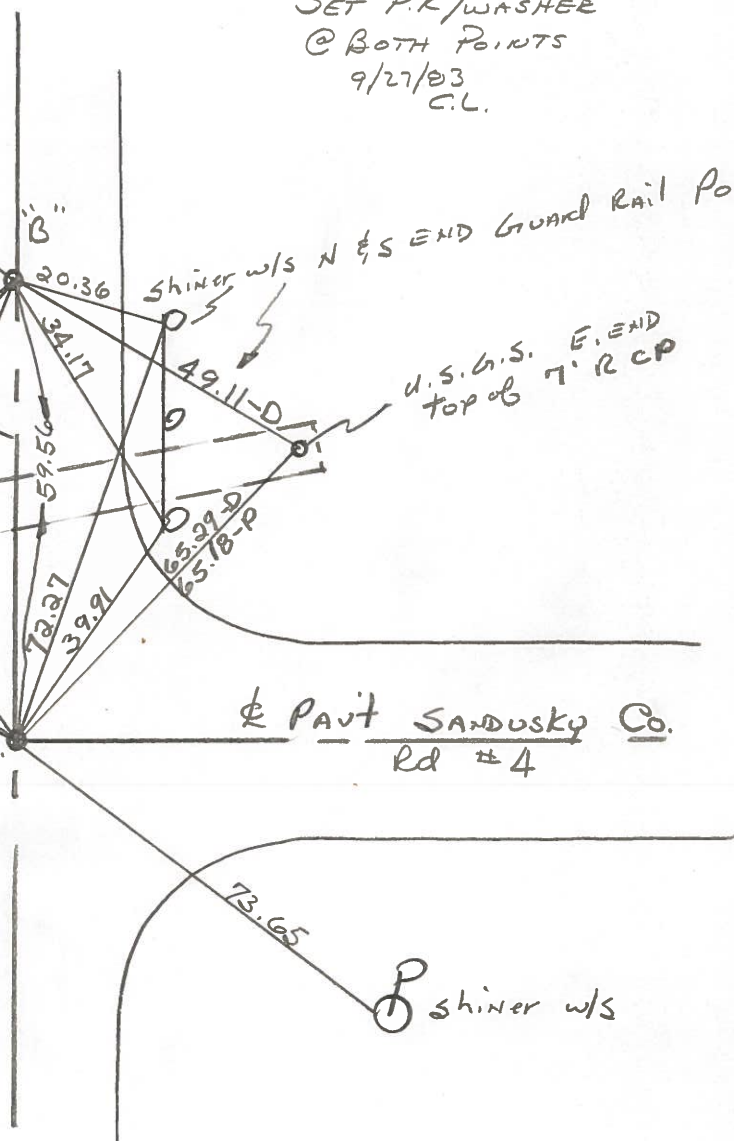 SET P.K/WASHER
@ BOTH POINTS
9/27/83
C.L.
"B"
20.36
shiner w/s N & S END GUARD RAIL Po
34.17
49.11-D
U.S.G.S. E. END
top of 7' R CP
59.56
65.29-D
65.18-P
72.27
39.91
℄ PAV't SANDUSKY Co.
Rd #4
73.65
P
shiner w/s